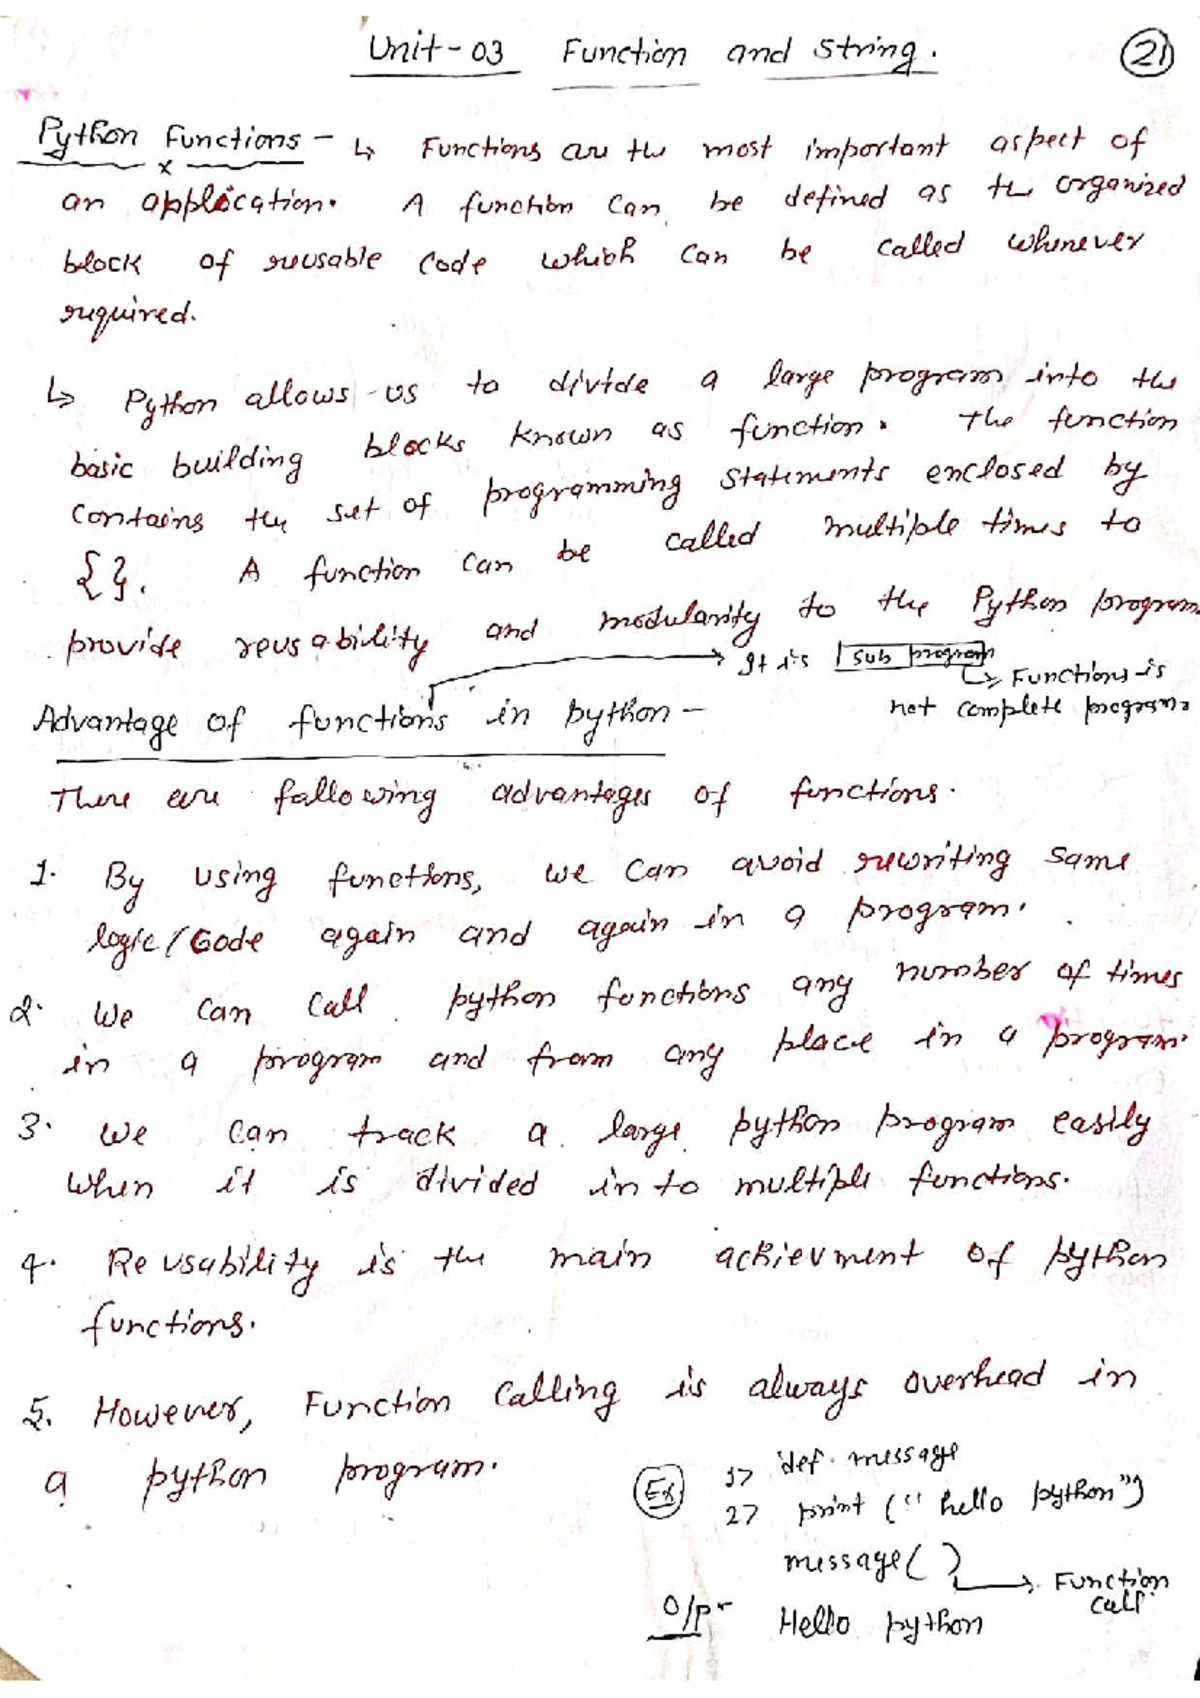 Unit-03 Function and String.
21
Python Functions - ↳ Functions are the most important aspect of
an application. A function can be defined as the organized
block of reusable code which can be called whenever
required.
↳ Python allows us to divide a large program into the
basic building blocks known as function. The function
contains the set of programming statements enclosed by
{}. A function can be called multiple times to
provide reusability and modularity to the Python program.
→ It is sub program
↳ Functions is
not complete program.
Advantage of functions in python -
There are following advantages of functions.
1. By using functions, we can avoid rewriting same
logic/Code again and again in a program.
2. We can call python functions any number of times
in a program and from any place in a program.
3. We can track a large python program easily
when it is divided in to multiple functions.
4. Reusability is the main achievment of python
functions.
5. However, Function calling is always overhead in
a python program.
Ex 1> def message
2> print ("hello python")
message( ) → Function
call.
O/p- Hello python